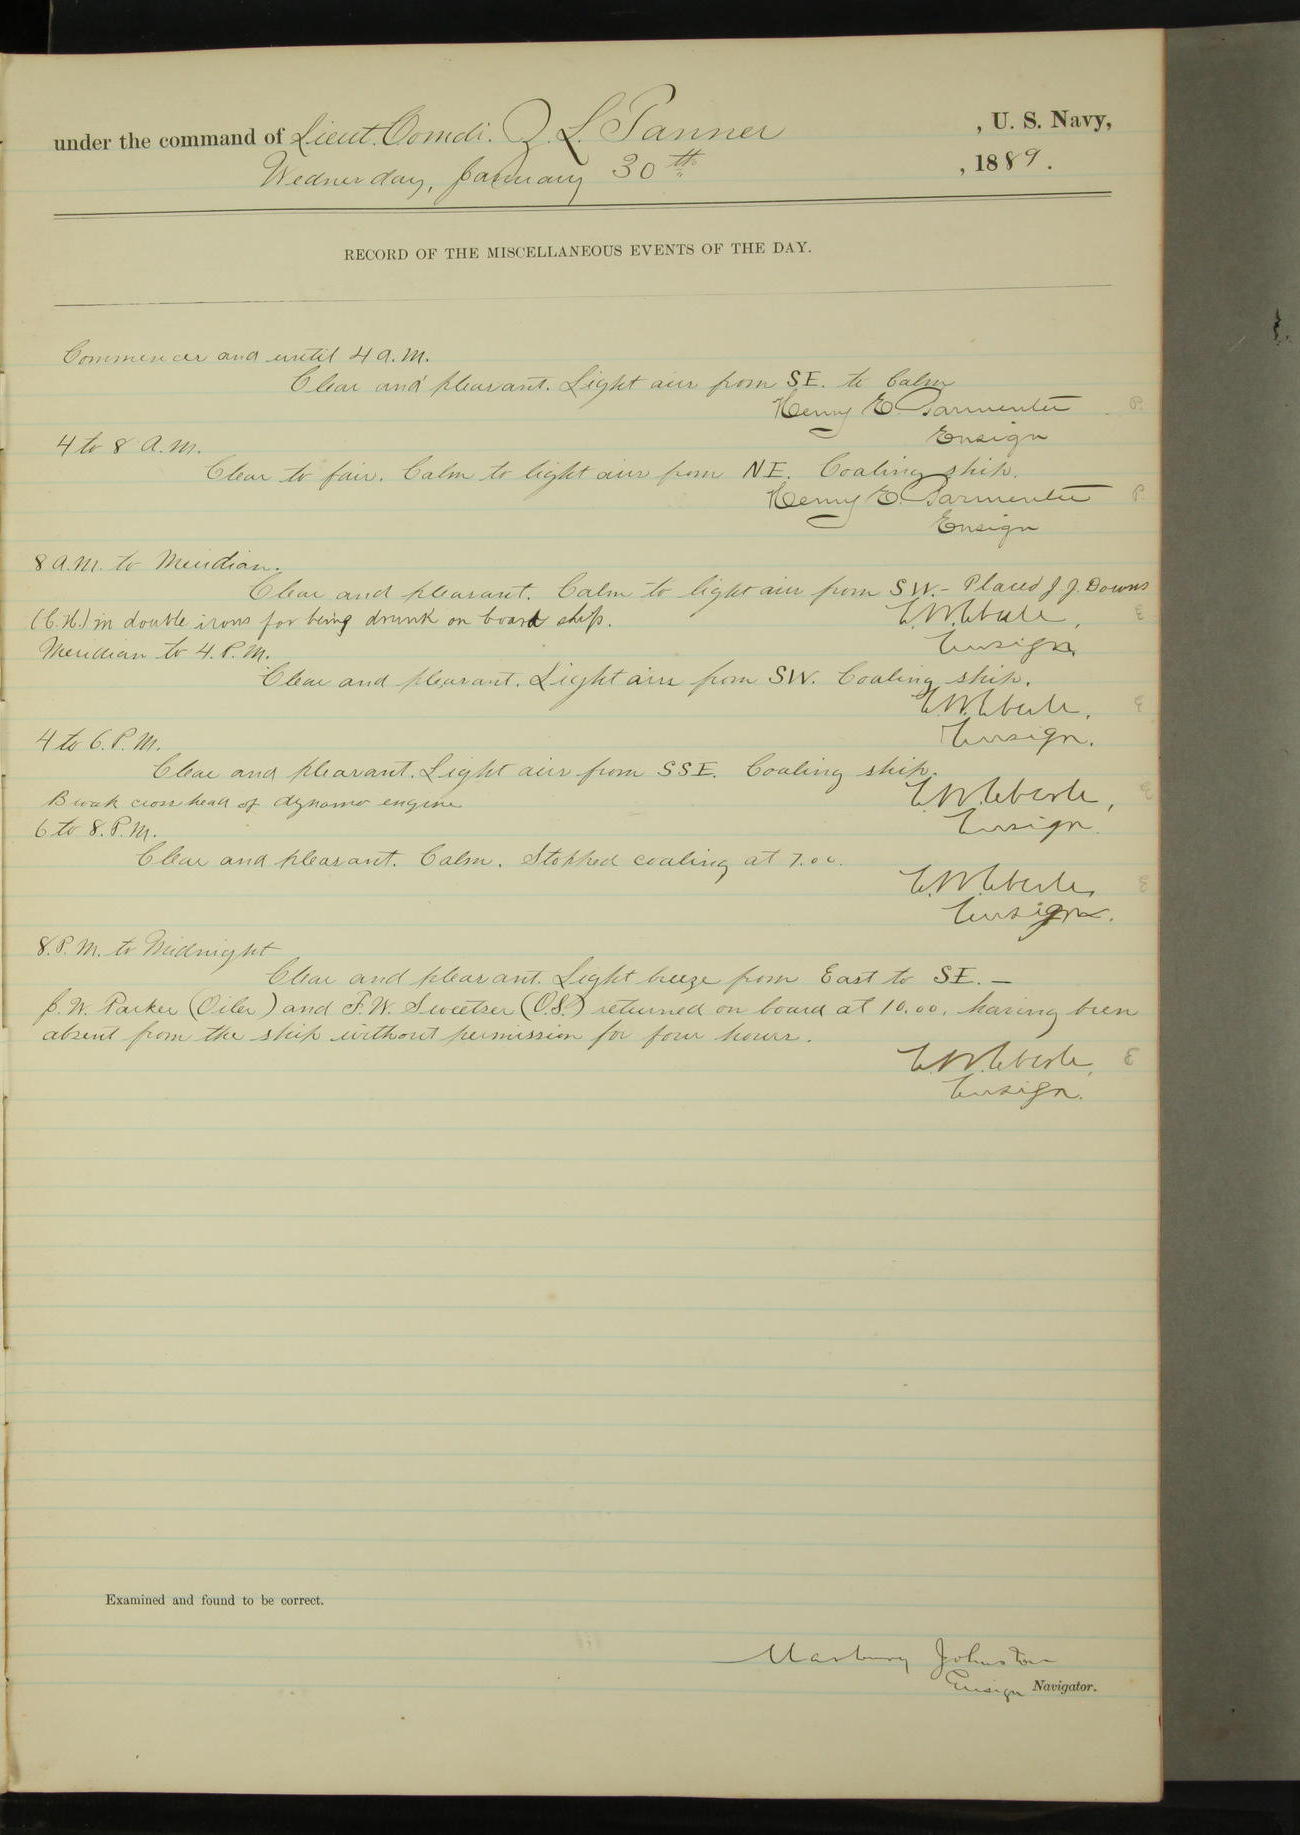 under the command of Lieut. Comdr. Z. L. Tanner , U. S. Navy,
Wednesday, January 30th , 1889.
RECORD OF THE MISCELLANEOUS EVENTS OF THE DAY.
Commences and until 4 a.m.
Clear and pleasant. Light airs from SE. to Calm
Henry E. Parmenter P.
Ensign
4 to 8 A.M.
Clear to fair. Calm to light airs from NE. Coaling ship.
Henry E. Parmenter P
Ensign
8 A.M. to Meridian.
Clear and pleasant. Calm to light airs from SW. - Placed J. J. Downs
(C.H.) in double irons for being drunk on board ship. E.W. Eberle, E
Meridian to 4. P.M. Ensign
Clear and pleasant. Light airs from SW. Coaling ship.
E.W. Eberle, E
4 to 6. P.M. Ensign.
Clear and pleasant. Light airs from SSE. Coaling ship.
Broak cross head of dynamo engine E.W. Eberle, E
6 to 8. P.M. Ensign.
Clear and pleasant. Calm. Stopped coaling at 7.00.
E.W. Eberle, E
Ensign.
8. P.M. to Midnight
Clear and pleasant. Light breeze from East to SE. —
J. W. Parker (Oiler) and F. W. Sweetser (O.S.) returned on board at 10.00, having been
absent from the ship without permission for four hours.
E.W. Eberle, E
Ensign.
Examined and found to be correct.
Marbury Johnston
Ensign Navigator.